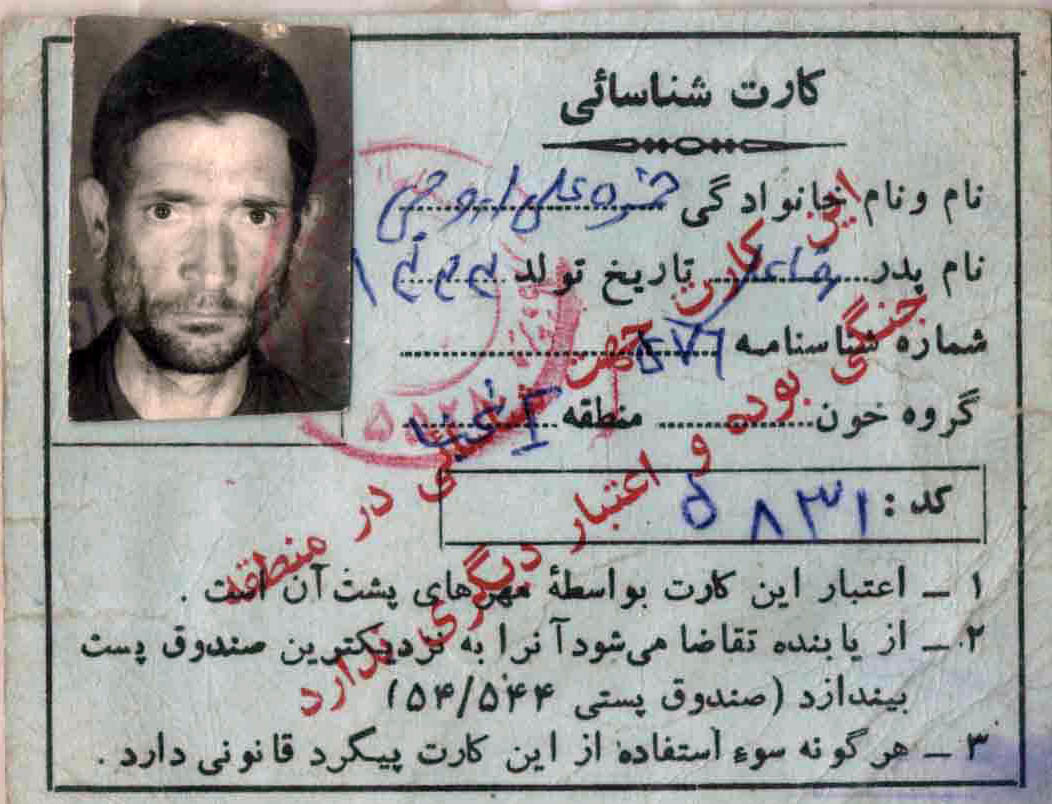 کارت شناسائی
نام ونام خانوادگی حمزه علی
نام پدر تاریخ تولد
شماره شناسنامه ۶۷۶
گروه خون منطقه
کد : ۸۳۱ ۵
۱ ــ اعتبار این کارت بواسطهٔ مهرهای پشت آن است .
۲ ــ از یابنده تقاضا می‌شود آنرا به نزدیکترین صندوق پست
بیندازد (صندوق پستی ۵۴/۵۴۴)
۳ ــ هرگونه سوء استفاده از این کارت پیگرد قانونی دارد .
این کارت جهت شناسائی در منطقه
جنگی بوده و اعتبار دیگری ندارد